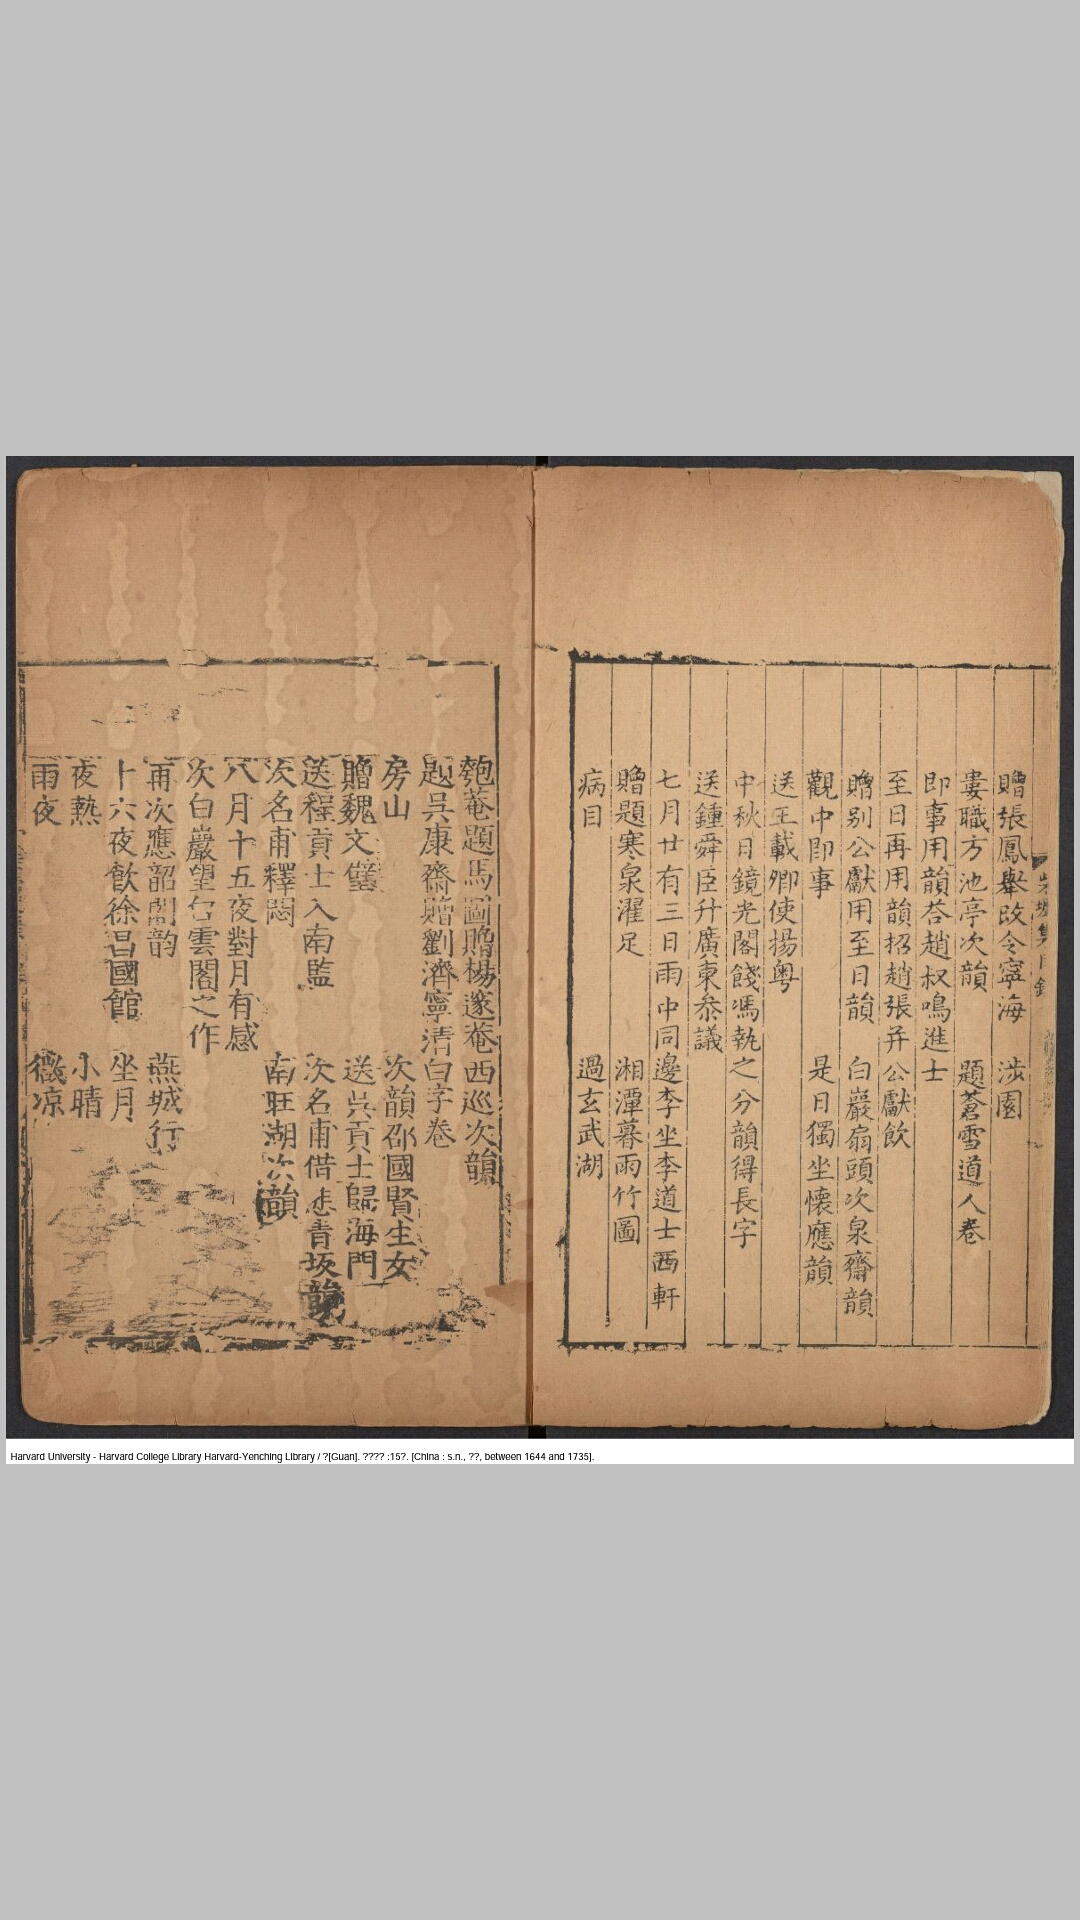 贈張鳳舉改令寧海 涉園
婁職方池亭次韻 題蒼雪道人卷
即事用韻荅趙叔鳴進士
至日再用韻招趙張并公獻飲
贈别公獻用至日韻 白巖扇頭次泉齋韻
觀中即事 是日獨坐懷應韻
送王載卿使揚粵
中秋日鏡光閣餞馮執之分韻得長字
送鍾舜臣升廣東叅議
七月廿有三日雨中同邊李坐李道士西軒
贈題寒泉濯足 湘潭暮雨竹圖
病目 過玄武湖
匏菴題馬圖贈楊邃菴西巡次韻
題吳康齋贈劉濟寧清白字卷
房山 次韻邵國賢生女
贈魏文璧 送吳貢士歸海門
送程貢士入南監 次名甫借悲青坂韻
次名甫釋悶 南旺湖次韻
八月十五夜對月有感
次白巖望白雲閣之作
再次應韶閣韵 燕城行
十六夜飲徐昌國館 坐月
夜熱 小晴
雨夜 微凉
Harvard University - Harvard College Library Harvard-Yenching Library / ?[Guan]. ???? :15?. [China : s.n., ??, between 1644 and 1735].